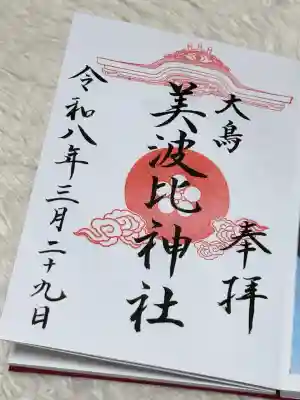 奉拝
大鳥
美波比神社
令和八年三月二十九日